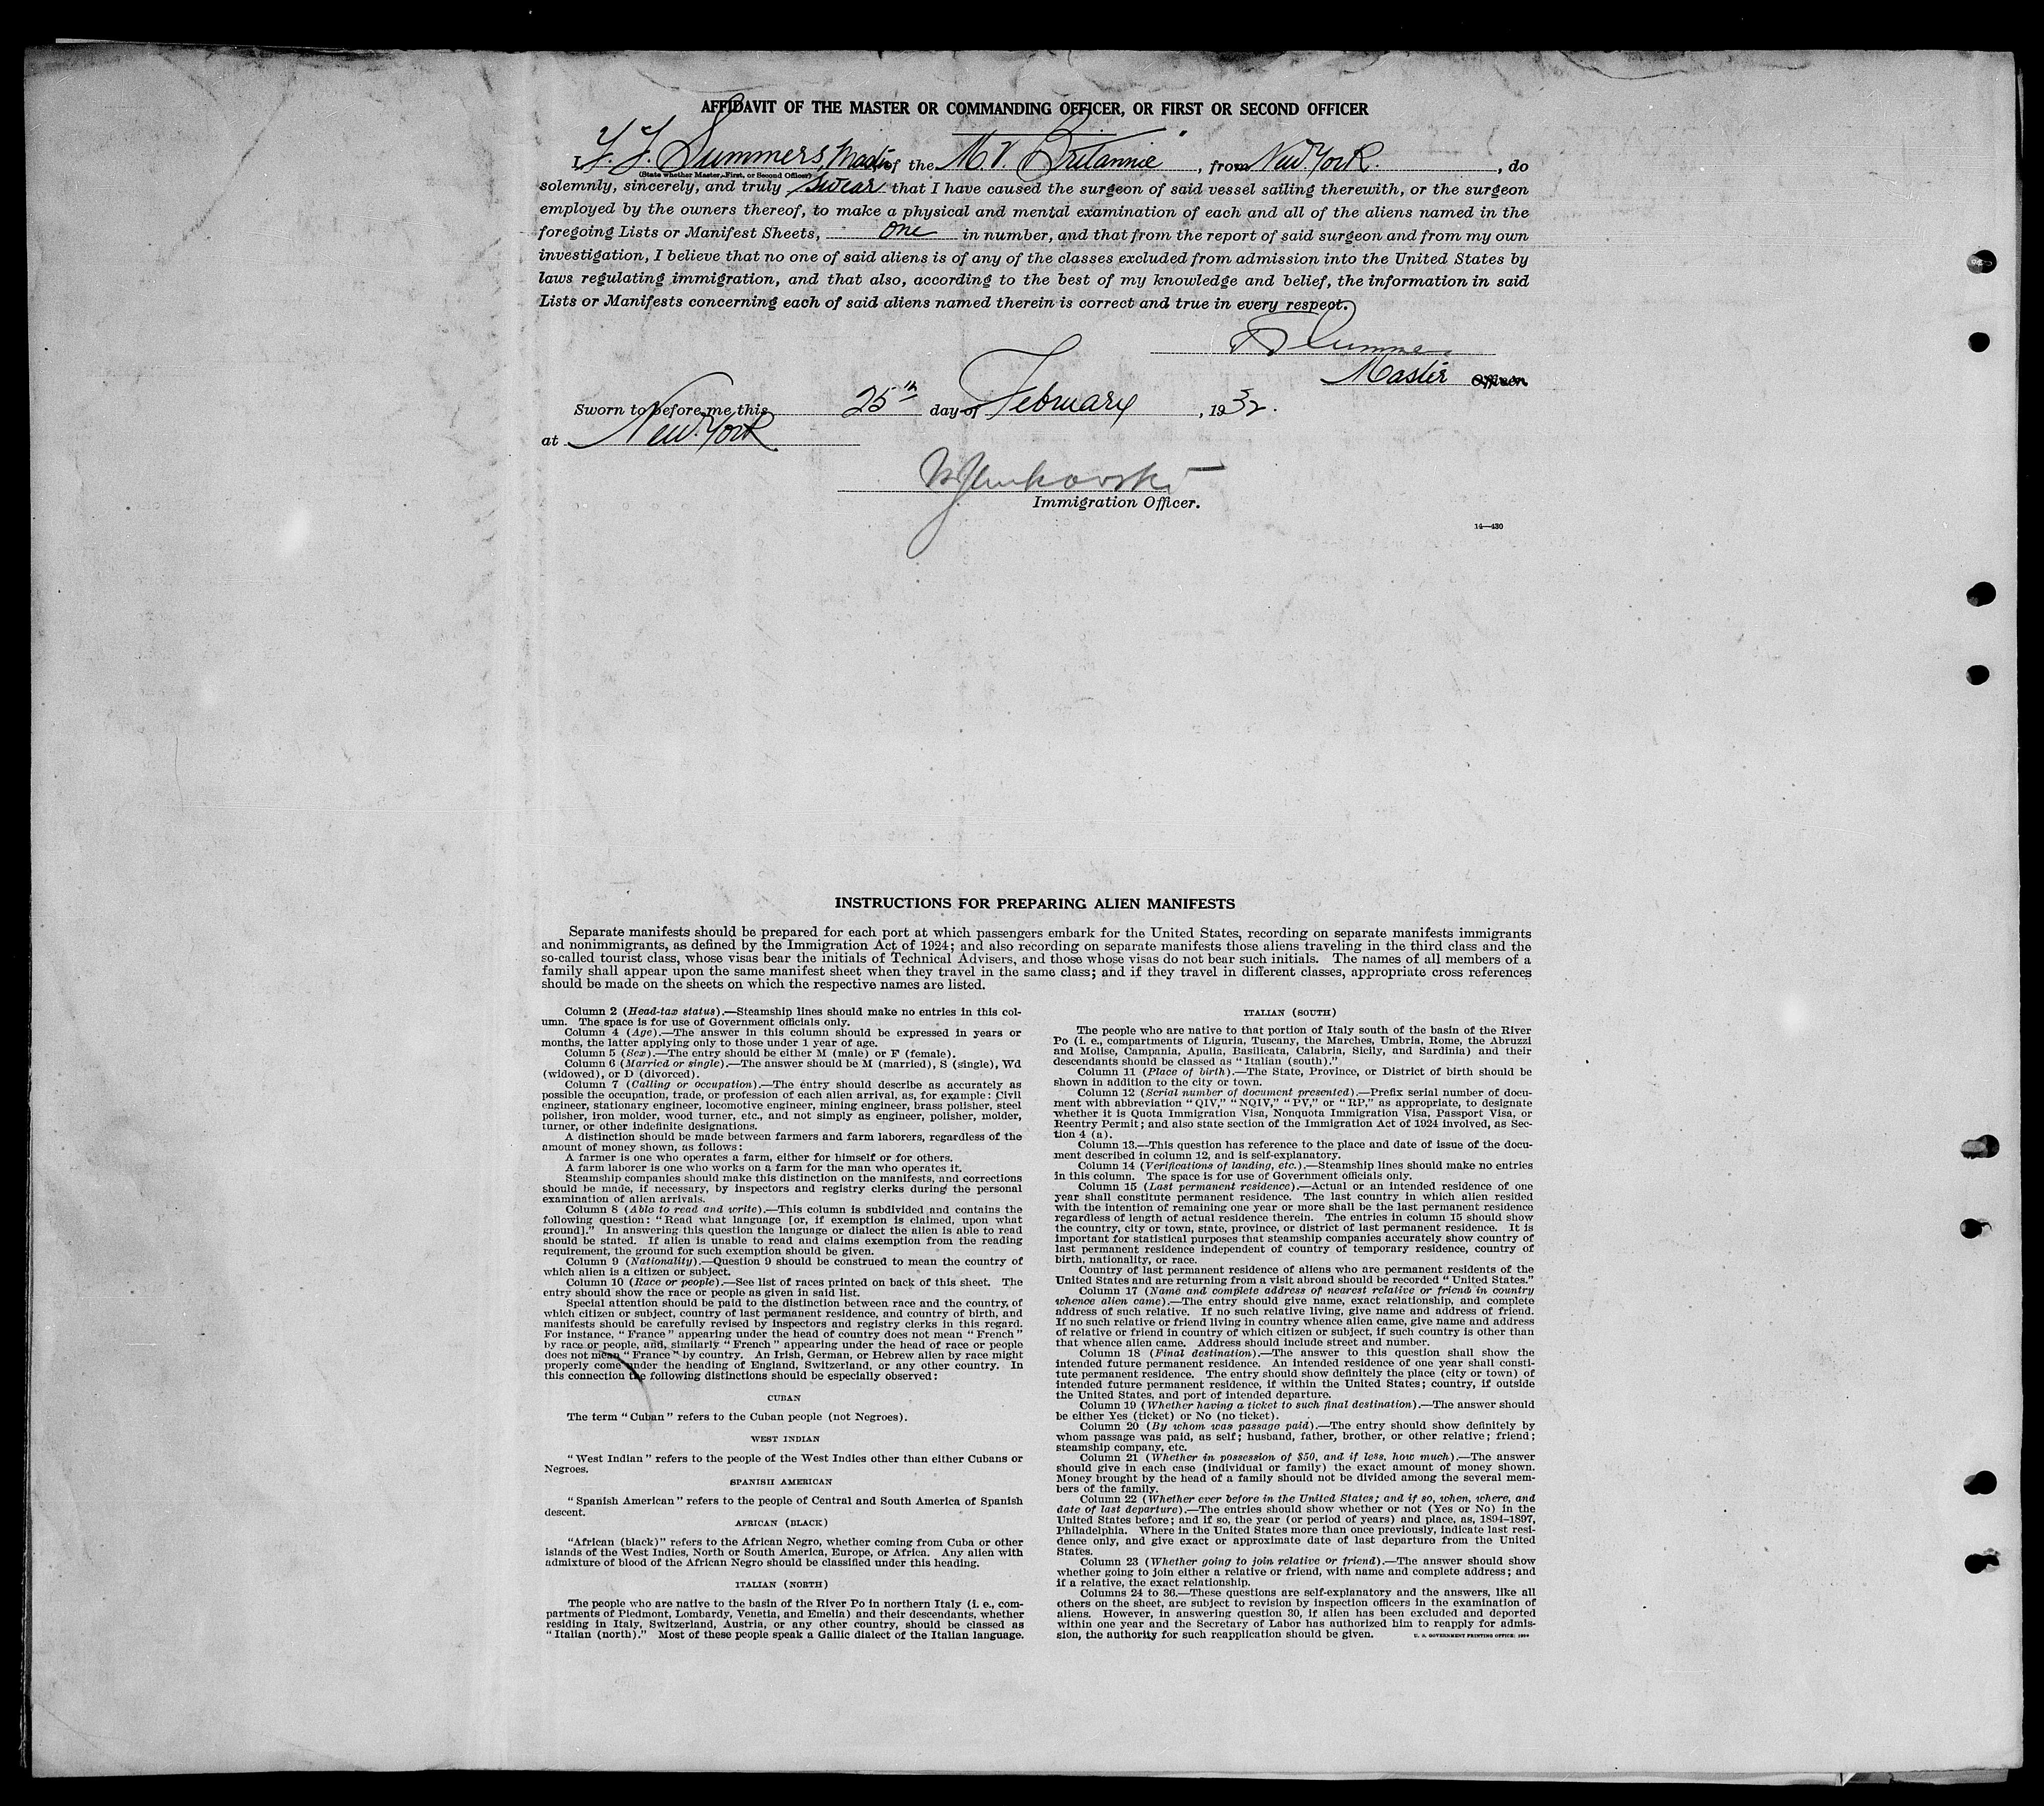 AFFIDAVIT OF THE MASTER OR COMMANDING OFFICER, OR FIRST OR SECOND OFFICER
I, F. F. Summers, Master of the M.V. "Britannic", from New York., do
(State whether Master, First, or Second Officer)
solemnly, sincerely, and truly swear that I have caused the surgeon of said vessel sailing therewith, or the surgeon
employed by the owners thereof, to make a physical and mental examination of each and all of the aliens named in the
foregoing Lists or Manifest Sheets, one in number, and that from the report of said surgeon and from my own
investigation, I believe that no one of said aliens is of any of the classes excluded from admission into the United States by
laws regulating immigration, and that also, according to the best of my knowledge and belief, the information in said
Lists or Manifests concerning each of said aliens named therein is correct and true in every respect.
Master Officer.
Sworn to before me this 25th day of February, 1932.
at New York
Immigration Officer.
14—430
INSTRUCTIONS FOR PREPARING ALIEN MANIFESTS
Separate manifests should be prepared for each port at which passengers embark for the United States, recording on separate manifests immigrants
and nonimmigrants, as defined by the Immigration Act of 1924; and also recording on separate manifests those aliens traveling in the third class and the
so-called tourist class, whose visas bear the initials of Technical Advisers, and those whose visas do not bear such initials. The names of all members of a
family shall appear upon the same manifest sheet when they travel in the same class; and if they travel in different classes, appropriate cross references
should be made on the sheets on which the respective names are listed.
Column 2 (Head-tax status).—Steamship lines should make no entries in this col-
umn. The space is for use of Government officials only.
Column 4 (Age).—The answer in this column should be expressed in years or
months, the latter applying only to those under 1 year of age.
Column 5 (Sex).—The entry should be either M (male) or F (female).
Column 6 (Married or single).—The answer should be M (married), S (single), Wd
(widowed), or D (divorced).
Column 7 (Calling or occupation).—The entry should describe as accurately as
possible the occupation, trade, or profession of each alien arrival, as, for example: Civil
engineer, stationary engineer, locomotive engineer, mining engineer, brass polisher, steel
polisher, iron molder, wood turner, etc., and not simply as engineer, polisher, molder,
turner, or other indefinite designations.
A distinction should be made between farmers and farm laborers, regardless of the
amount of money shown, as follows:
A farmer is one who operates a farm, either for himself or for others.
A farm laborer is one who works on a farm for the man who operates it.
Steamship companies should make this distinction on the manifests, and corrections
should be made, if necessary, by inspectors and registry clerks during the personal
examination of alien arrivals.
Column 8 (Able to read and write).—This column is subdivided and contains the
following question: "Read what language [or, if exemption is claimed, upon what
ground]." In answering this question the language or dialect the alien is able to read
should be stated. If alien is unable to read and claims exemption from the reading
requirement, the ground for such exemption should be given.
Column 9 (Nationality).—Question 9 should be construed to mean the country of
which alien is a citizen or subject.
Column 10 (Race or people).—See list of races printed on back of this sheet. The
entry should show the race or people as given in said list.
Special attention should be paid to the distinction between race and the country, of
which citizen or subject, country of last permanent residence, and country of birth, and
manifests should be carefully revised by inspectors and registry clerks in this regard.
For instance, "France" appearing under the head of country does not mean "French"
by race or people, and, similarly "French" appearing under the head of race or people
does not mean "France" by country. An Irish, German, or Hebrew alien by race might
properly come under the heading of England, Switzerland, or any other country. In
this connection the following distinctions should be especially observed:
CUBAN
The term "Cuban" refers to the Cuban people (not Negroes).
WEST INDIAN
"West Indian" refers to the people of the West Indies other than either Cubans or
Negroes.
SPANISH AMERICAN
"Spanish American" refers to the people of Central and South America of Spanish
descent.
AFRICAN (BLACK)
"African (black)" refers to the African Negro, whether coming from Cuba or other
islands of the West Indies, North or South America, Europe, or Africa. Any alien with
admixture of blood of the African Negro should be classified under this heading.
ITALIAN (NORTH)
The people who are native to the basin of the River Po in northern Italy (i. e., com-
partments of Piedmont, Lombardy, Venetia, and Emelia) and their descendants, whether
residing in Italy, Switzerland, Austria, or any other country, should be classed as
"Italian (north)." Most of these people speak a Gallic dialect of the Italian language.
ITALIAN (SOUTH)
The people who are native to that portion of Italy south of the basin of the River
Po (i. e., compartments of Liguria, Tuscany, the Marches, Umbria, Rome, the Abruzzi
and Molise, Campania, Apulia, Basilicata, Calabria, Sicily, and Sardinia) and their
descendants should be classed as "Italian (south)."
Column 11 (Place of birth).—The State, Province, or District of birth should be
shown in addition to the city or town.
Column 12 (Serial number of document presented).—Prefix serial number of docu-
ment with abbreviation "QIV," "NQIV," "PV," or "RP," as appropriate, to designate
whether it is Quota Immigration Visa, Nonquota Immigration Visa, Passport Visa, or
Reentry Permit; and also state section of the Immigration Act of 1924 involved, as Sec-
tion 4 (a).
Column 13.—This question has reference to the place and date of issue of the docu-
ment described in column 12, and is self-explanatory.
Column 14 (Verifications of landing, etc.).—Steamship lines should make no entries
in this column. The space is for use of Government officials only.
Column 15 (Last permanent residence).—Actual or an intended residence of one
year shall constitute permanent residence. The last country in which alien resided
with the intention of remaining one year or more shall be the last permanent residence
regardless of length of actual residence therein. The entries in column 15 should show
the country, city or town, state, province, or district of last permanent residence. It is
important for statistical purposes that steamship companies accurately show country of
last permanent residence independent of country of temporary residence, country of
birth, nationality, or race.
Country of last permanent residence of aliens who are permanent residents of the
United States and are returning from a visit abroad should be recorded "United States."
Column 17 (Name and complete address of nearest relative or friend in country
whence alien came).—The entry should give name, exact relationship, and complete
address of such relative. If no such relative living, give name and address of friend.
If no such relative or friend living in country whence alien came, give name and address
of relative or friend in country of which citizen or subject, if such country is other than
that whence alien came. Address should include street and number.
Column 18 (Final destination).—The answer to this question shall show the
intended future permanent residence. An intended residence of one year shall consti-
tute permanent residence. The entry should show definitely the place (city or town) of
intended future permanent residence, if within the United States; country, if outside
the United States, and port of intended departure.
Column 19 (Whether having a ticket to such final destination).—The answer should
be either Yes (ticket) or No (no ticket).
Column 20 (By whom was passage paid).—The entry should show definitely by
whom passage was paid, as self; husband, father, brother, or other relative; friend;
steamship company, etc.
Column 21 (Whether in possession of $50, and if less, how much).—The answer
should give in each case (individual or family) the exact amount of money shown.
Money brought by the head of a family should not be divided among the several mem-
bers of the family.
Column 22 (Whether ever before in the United States; and if so, when, where, and
date of last departure).—The entries should show whether or not (Yes or No) in the
United States before; and if so, the year (or period of years) and place, as, 1894-1897,
Philadelphia. Where in the United States more than once previously, indicate last resi-
dence only, and give exact or approximate date of last departure from the United
States.
Column 23 (Whether going to join relative or friend).—The answer should show
whether going to join either a relative or friend, with name and complete address; and
if a relative, the exact relationship.
Columns 24 to 36.—These questions are self-explanatory and the answers, like all
others on the sheet, are subject to revision by inspection officers in the examination of
aliens. However, in answering question 30, if alien has been excluded and deported
within one year and the Secretary of Labor has authorized him to reapply for admis-
sion, the authority for such reapplication should be given.
U. S. GOVERNMENT PRINTING OFFICE: